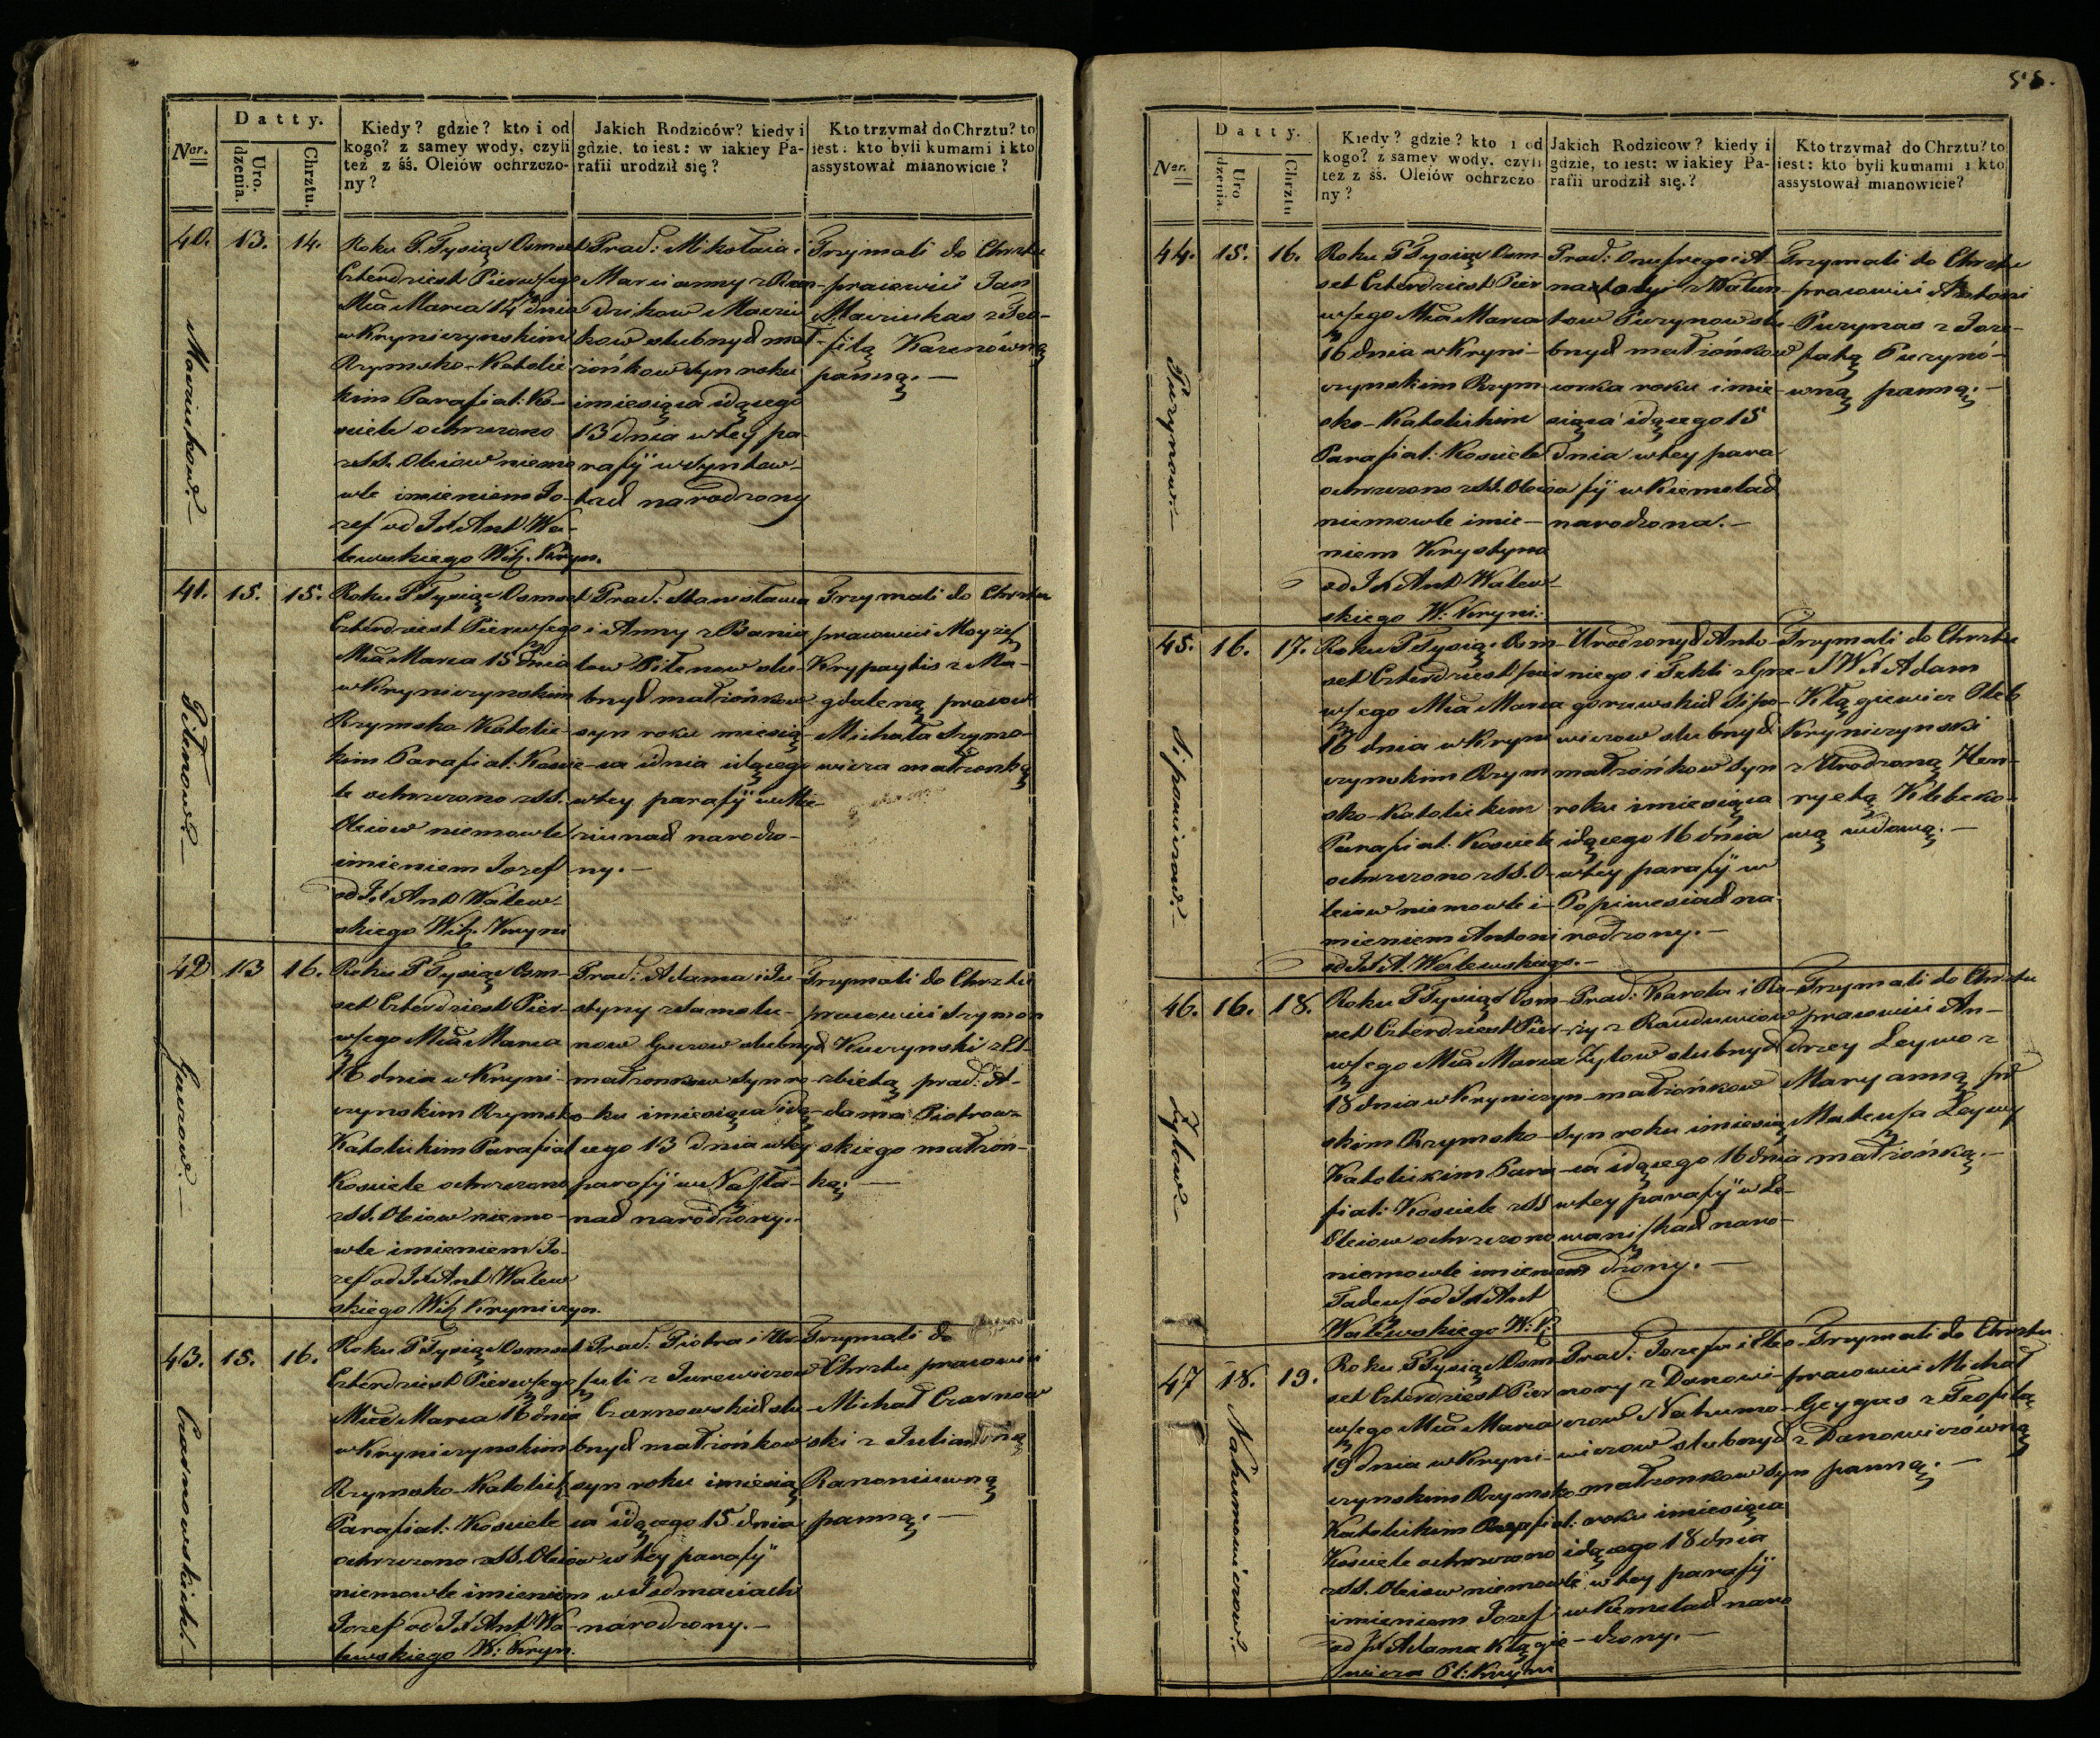 55.
Datty.
Ner.
Uro.
dzenia.
Chrztu.
Kiedy? gdzie? kto i od
kogo? z samey wody, czyli
też z śś. Oleiów ochrzczo-
ny?
Jakich Rodziców? kiedy i
gdzie, to iest: w iakiey Pa-
rafii urodził się?
Kto trzymał do Chrztu? to
iest: kto byli kumami i kto
assystował mianowicie?
40.
13.
14.
Roku P. Tysiąc Osmset
Czterdziest Pierwszego
Mca Marca 14 dnia
w Kryniczynskim
Rzymsko-Katolic
kim Parafial: Ko-
sciele ochrzczono
z SS. Oleiow niemo
wle imieniem Jo-
zef od JX Ant Wa-
lewskiego Wik. Kryn.
Prac: Mikołaia i
Marcianny z Ran
dzikow
kow slubnych mał-
żonkow syn roku
i miesiąca idącego
13 dnia w tey pa
rafij w Syntow-
tach narodzony
Trzymali do Chrztu
pracowici Jan
z Teo-
filą
panną.—
41.
15.
15.
Roku P Tysiąc Osmset
Czterdziest Pierwszego
Mca Marca 15 dnia
w Kryniczynskim
Rzymsko-Katolic-
kim Parafial: Koscie-
le ochrzczono z SS.
Oleiow niemowle
imieniem Jozef
od JX Ant Walew-
skiego Wik. Kryni
Pilenow.—
Prac: Stanisława
i Anny z Bania
low Pilenow slu-
bnych małżonkow
syn roku miesią-
ca i dnia idącego
w tey parafij w
narodzo-
ny.—
Trzymali do Chrztu
pracowici Moyzesz
z Ma-
gdaleną pracow
Michała Szymo-
wicza małżonką
42
13
16.
Guzow.—
Roku P Tysiąc Osm-
set Czterdziest Pier-
wszego Mca Marca
16 dnia w Kryni-
czynskim Rzymsko
Katolickim Parafial
Kosciele ochrzczono
z SS. Oleiow niemo-
wle imieniem Jo-
zef od JX Ant Walew
skiego Wik Kryniczyn.
Prac: Adama i Ju-
styny z Samolu-
now Guzow slubnych
małzonkow syn ro-
ku i miesiąca idą-
cego 13 dnia w tey
parafij w
narodzony.—
Trzymali do Chrztu
pracowici Szymon
Kuczynski z El-
zbietą prac: A-
dama Piotrow-
skiego małżon-
ką.—
43.
15.
16.
Czarnowskich.
Roku P Tysiąc Osmset
Czterdziest Pierwszego
Mca Marca 16 dnia
w Kryniczynskim
Rzymsko-Katolick
Parafial: Kosciele
ochrzczono z SS. Oleiow
niemowle imieniem
Jozef od JX Ant Wa-
lewskiego W: Kryn.
Prac: Piotra i Ur-
szuli z Jurewiczow
Czarnowskich slu-
bnych małżonkow
syn roku i miesią
ca idącego 15 dnia
w tey parafij
w Jodmaciach
narodzony.—
Trzymali do
Chrztu pracowici
Michał Czarnow
ski z Julianną
panną.—
Datty.
Ner.
Uro
dzenia.
Chrztu
Kiedy? gdzie? kto i od
kogo? z samey wody, czyli
też z śś. Oleiów ochrzczo
ny?
Jakich Rodziców? kiedy i
gdzie, to iest: w iakiey Pa-
rafii urodził się?
Kto trzymał do Chrztu? to
iest: kto byli kumami i kto
assystował mianowicie?
44.
15.
16.
Puzynow.—
Roku P Tysiąc Osm
set Czterdziest Pier
wszego Mca Marca
16 dnia w Kryni-
czynskim Rzym-
sko-Katolickim
Parafial: Kosciele
ochrzczono z SS. Oleio
niemowle imie-
niem Krystyna
od JX Ant Walew-
skiego W: Kryni:
Prac: Onufrego i A
nastazyi z Walun-
tow Puzynow slu-
bnych małżonkow
corka roku i mie
siąca idącego 15
dnia w tey para
fij w Kiemelach
narodzona.—
Trzymali do Chrztu
pracowici Antoni
Puzynas z Joze-
fatą Puzynó-
wną panną.—
45.
16.
17.
Sipowiczow.—
Roku P Tysiąc Osm-
set Czterdziest pier
wszego Mca Marca
16 dnia w Kryni
czynskim Rzym
sko-Katolickim
Parafial: Kosciele
ochrzczono z SS. O-
leiow niemowle i-
mieniem Antoni
od JX A. Walewskiego.—
Urodzonych Anto-
niego i Tekli z Grze-
gorzewskich Sipo-
wiczow slubnych
małżonkow syn
roku i miesiąca
idącego 16 dnia
w tey parafij w
na
rodzony.—
Trzymali do Chrztu
JWX Adam
Kłągiewicz Pleb
Kryniczynski
z Urodzoną Hen-
ryetą
wą wdową.—
46.
16.
18.
Zylow.—
Roku P Tysiąc Osm-
set Czterdziest Pier-
wszego Mca Marca
18 dnia w Kryniczyn-
skim Rzymsko-
Katolickim Para-
fial: Kosciele z SS
Oleiow ochrzczono
niemowle imieniem
Tadeusz od JX Ant
Walewskiego W: K
Prac: Karola i Ro-
ży z Rauduwiow
Zylow slubnych
małżonkow
syn roku i miesią
ca idącego 16 dnia
w tey parafij w
naro-
dzony.—
Trzymali do Chrztu
pracowici An-
drzey Leywo z
Maryanną pr
Mateusza Leywy
małżonką.—
47
18.
19.
Nahumowiczow.—
Roku P Tysiąc Osm
set Czterdziest Pier
wszego Mca Marca
19 dnia w Kryni-
czynskim Rzymsko
Katolickim Parafial:
Kosciele ochrzczono
z SS. Oleiow niemowle
imieniem Jozef
od JX Adama Kłągie-
wicza Pl: Kryni
Prac: Jozefa i Eleo-
nory z Danowi-
czow Nahumo-
wiczow slubnych
małzonkow syn
roku i miesiąca
idącego 18 dnia
w tey parafij
w Kiemelach naro
dzony.—
Trzymali do Chrztu
pracowici Michał
Geygas z Teofilą
z Danowiczówną
panną.—